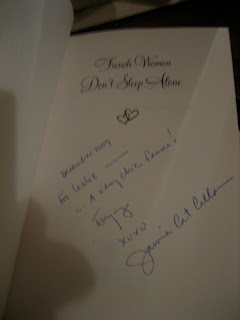 French Women
Don't Sleep Alone
December 2009
For Leslie —
... A very chic femme!
Enjoy
xoxo
Jamie Cat Callan